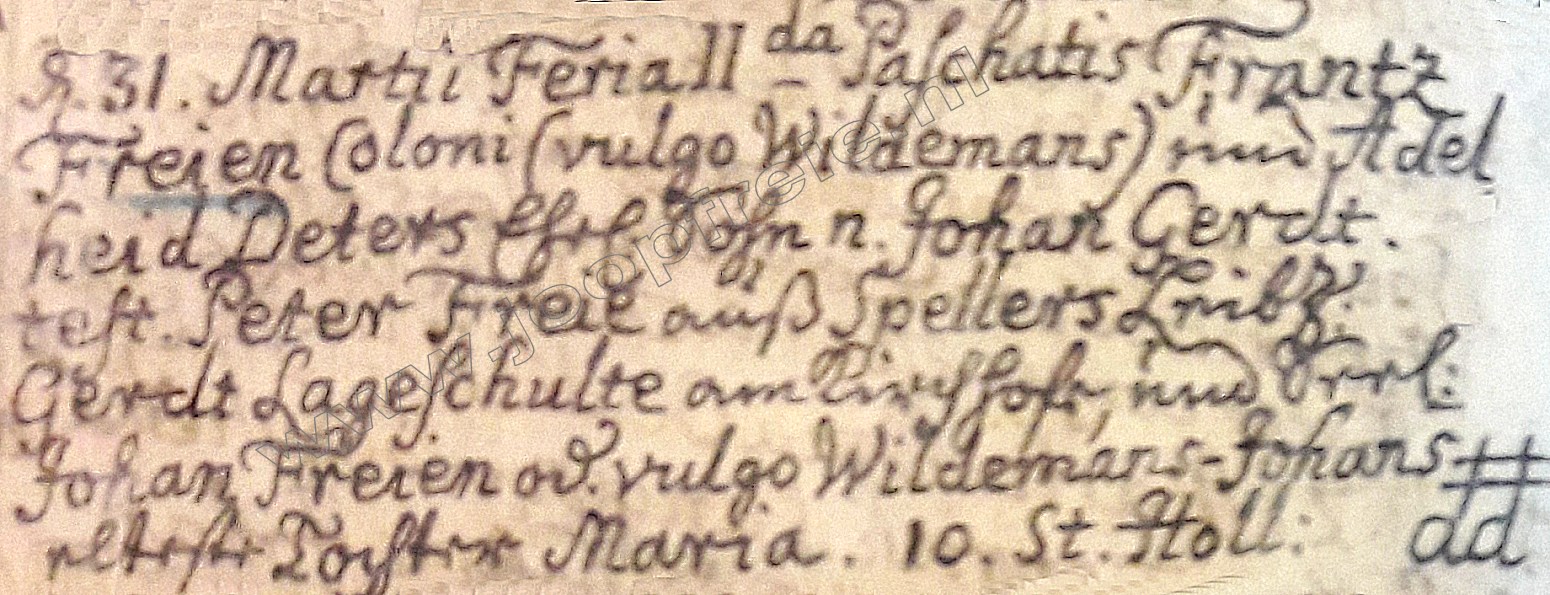 31. Martii Feria II da Paschatis Frantz
Freien Coloni (vulgo Wildemans) und Adel
heid Deters Ehel. Sohn n. Johan Gerdt.
test. Peter Freie auß Spellers Leibz.
Gerdt Lageschulte am Kirchhofe, und
Johan Freien od. vulgo Wildemans-Johans
elteste Tochter Maria. 10. St. Holl: dd
www.jooptreie.nl